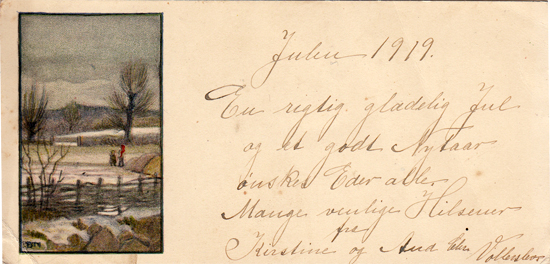 Julen 1919.
En rigtig glædelig Jul
og et godt Nytaar
ønskes Eder alle
Mange venlige Hilsener
fra
Kirstine og And